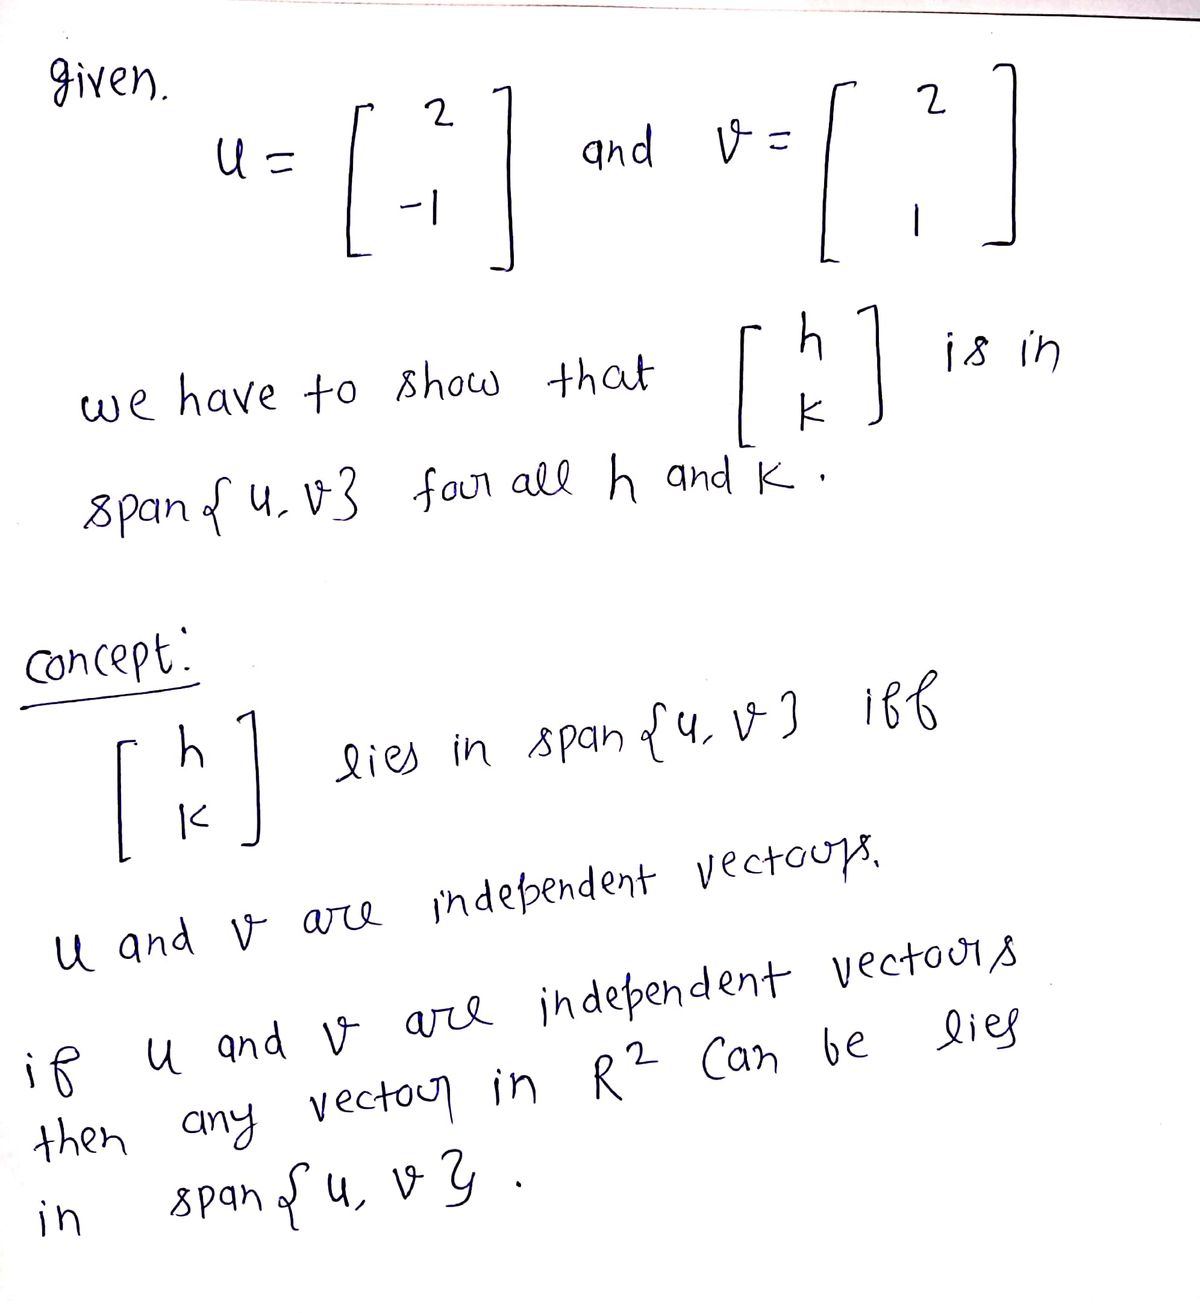 given.
u = [ 2 -1 ] and v = [ 2 1 ]
we have to show that [ h k ] is in
span { u, v } for all h and k .
concept:
[ h k ] lies in span { u, v } iff
u and v are independent vectors.
if u and v are independent vectors
then any vector in R² can be lies
in span { u, v } .